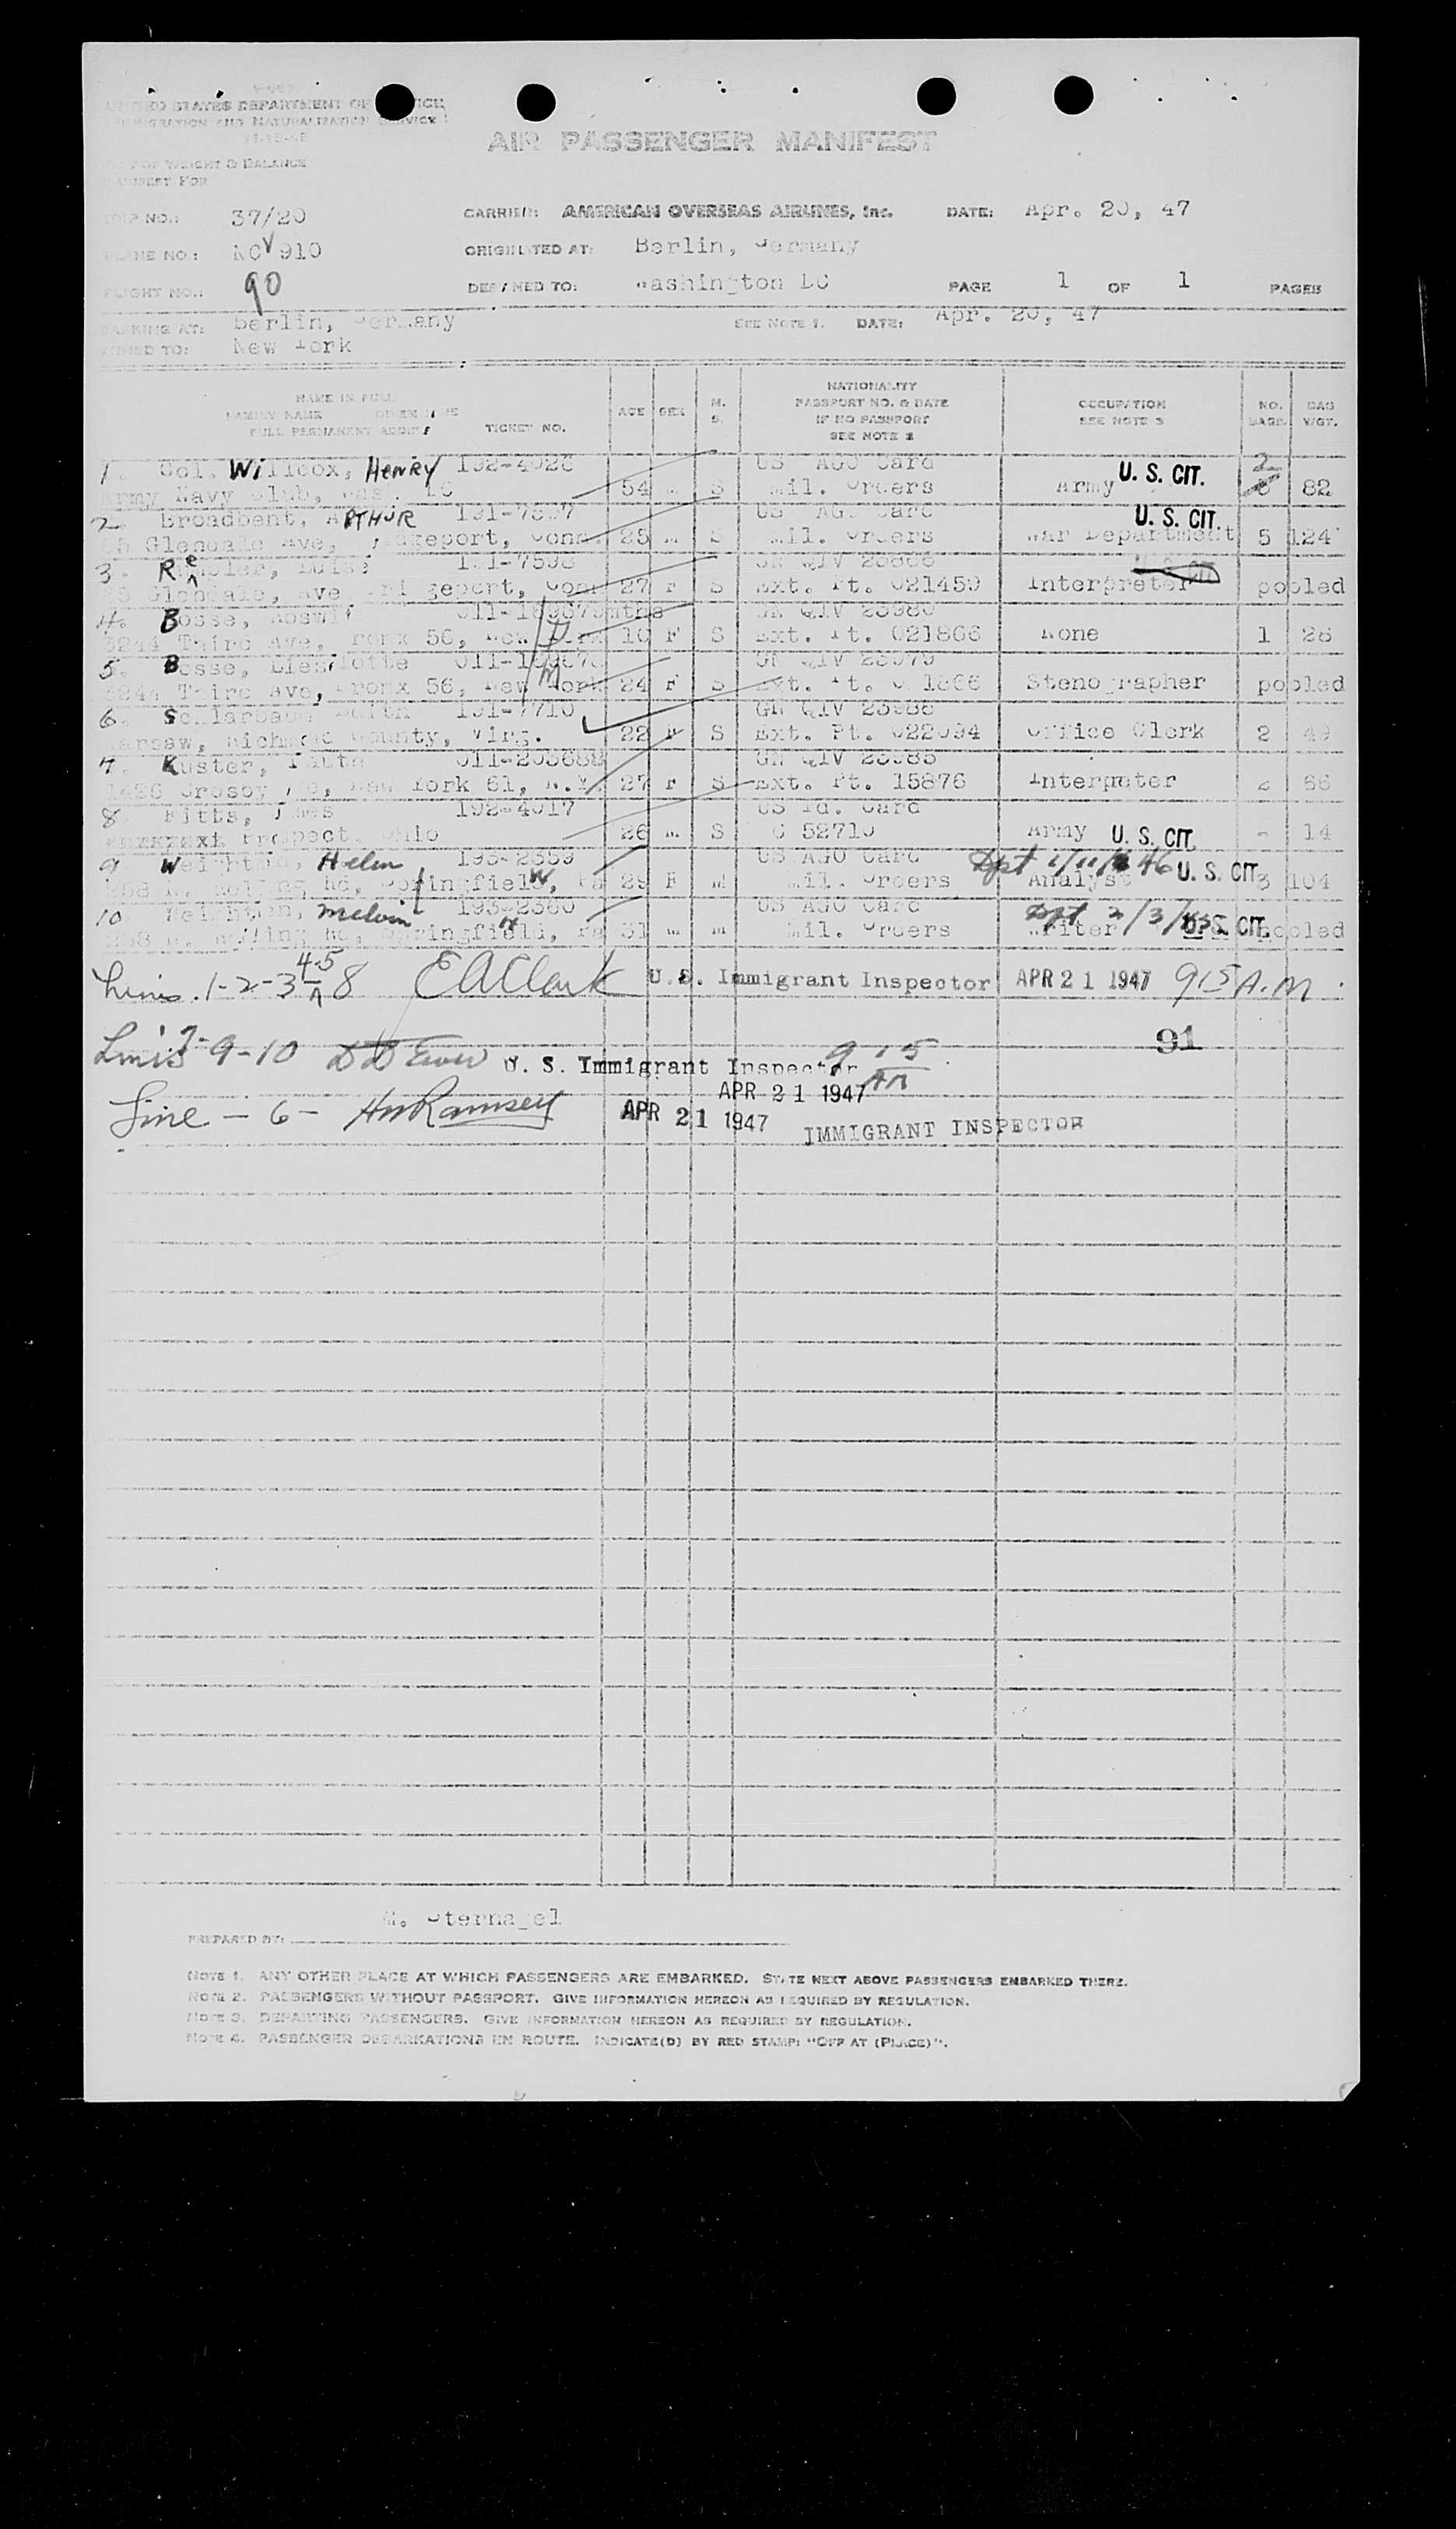 UNITED STATES DEPARTMENT OF JUSTICE
IMMIGRATION AND NATURALIZATION SERVICE
AIR PASSENGER MANIFEST
OF WEIGHT & BALANCE
MANIFEST FOR
TRIP NO.: 37/20 CARRIER: AMERICAN OVERSEAS AIRLINES, Inc. DATE: Apr. 20, 47
PLANE NO.: NC 910 ORIGINATED AT: Berlin, Germany
FLIGHT NO.: 90 DESTINED TO: Washington DC PAGE 1 OF 1 PAGES
EMBARKING AT: Berlin, Germany SEE NOTE 1. DATE: Apr. 20, 47
DESTINED TO: New York
NAME IN FULL
FAMILY NAME GIVEN NAME
FULL PERMANENT ADDRESS TICKET NO. AGE SEX M. S. NATIONALITY PASSPORT NO. & DATE IF NO PASSPORT SEE NOTE 2 OCCUPATION SEE NOTE 3 NO. BAGS BAG WGT.
1. Col. Willcox, HENRY 192-4026 US AGO Card U. S. CIT. 2
Army Navy Club, Wash. DC 54 M S Mil. Orders Army 82
2. Broadbent, ARTHUR 191-7597 US AGO Card U. S. CIT.
Glendale Ave, Bridgeport, Conn. 25 M S Mil. Orders War Department 5 124
3. Luise 191-7598 GN QIV
Glendale, Ave Bridgeport, Conn 27 F S Ext. Pt. 021459 Interpreter pooled
4. Bosse, mths GN QIV 23980
3244 Third Ave, Bronx 56, New York 10 F S Ext. Pt. 021866 None 1 26
5. Bosse, Lieselotte GN QIV 23979
3244 Third Ave, Bronx 56, New York 24 F S Ext. Pt. Stenographer pooled
6. 191-7710 GN QIV 23988
Warsaw, Richmond County, Virg. 22 F S Ext. Pt. 022094 Office Clerk 2 49
7. Kuster, 011-203688 GN QIV 23985
1426 Crosby Ave, New York 61, N.Y. 27 F S Ext. Pt. 15876 Interpreter 2 66
8 Kitts, James 192-4017 US Id. Card
Prospect, Ohio 26 M S C 52710 Army U. S. CIT. - 14
9 Weighton, Helen 193-2359 US AGO Card Dpt 46 U. S. CIT.
Rolling Rd, Springfield, Pa 29 F M Mil. Orders Analyst 3 104
10 Weighton, Melvin 193-2360 US AGO Card Dpt 2/3/
Rolling Rd, Springfield, Pa 31 M M Mil. Orders Writer U. S. CIT. pooled
Lines. 1-2-3 4-5 8 E A Clark U. S. Immigrant Inspector APR 21 1947 915 A.M.
91
Lines 7-9-10 U. S. Immigrant Inspector 915 AM
APR 21 1947
Line - 6 - Ramsey APR 21 1947 IMMIGRANT INSPECTOR
M. Sternagel
PREPARED BY:
NOTE 1. ANY OTHER PLACE AT WHICH PASSENGERS ARE EMBARKED. STATE NEXT ABOVE PASSENGERS EMBARKED THERE.
NOTE 2. PASSENGERS WITHOUT PASSPORT. GIVE INFORMATION HEREON AS REQUIRED BY REGULATION.
NOTE 3. DEPARTING PASSENGERS. GIVE INFORMATION HEREON AS REQUIRED BY REGULATION.
NOTE 4. PASSENGER DEBARKATIONS EN ROUTE. INDICATE(D) BY RED STAMP: "OFF AT (PLACE)".